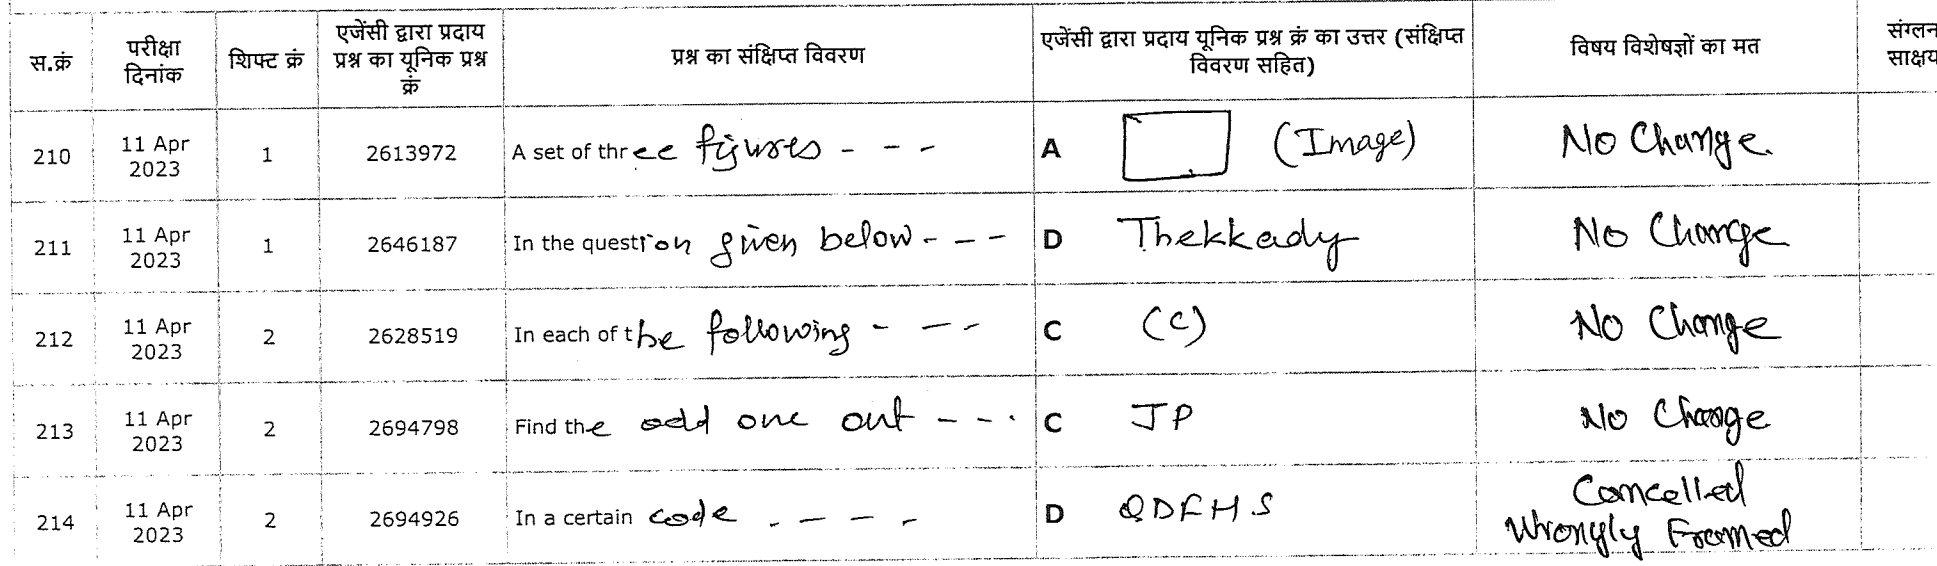 स.क्रं परीक्षा दिनांक शिफ्ट क्रं एजेंसी द्वारा प्रदाय प्रश्न का यूनिक प्रश्न क्रं प्रश्न का संक्षिप्त विवरण एजेंसी द्वारा प्रदाय यूनिक प्रश्न क्रं का उत्तर (संक्षिप्त विवरण सहित) विषय विशेषज्ञों का मत संग्लन साक्षय
210 11 Apr 2023 1 2613972 A set of three figures - - - A (Image) No Change.
211 11 Apr 2023 1 2646187 In the question given below - - - D Thekkady No Change
212 11 Apr 2023 2 2628519 In each of the following - - - C (C) No Change
213 11 Apr 2023 2 2694798 Find the odd one out - - - . C JP No Change
214 11 Apr 2023 2 2694926 In a certain code - - - - D QDFHS Cancelled Wrongly Framed